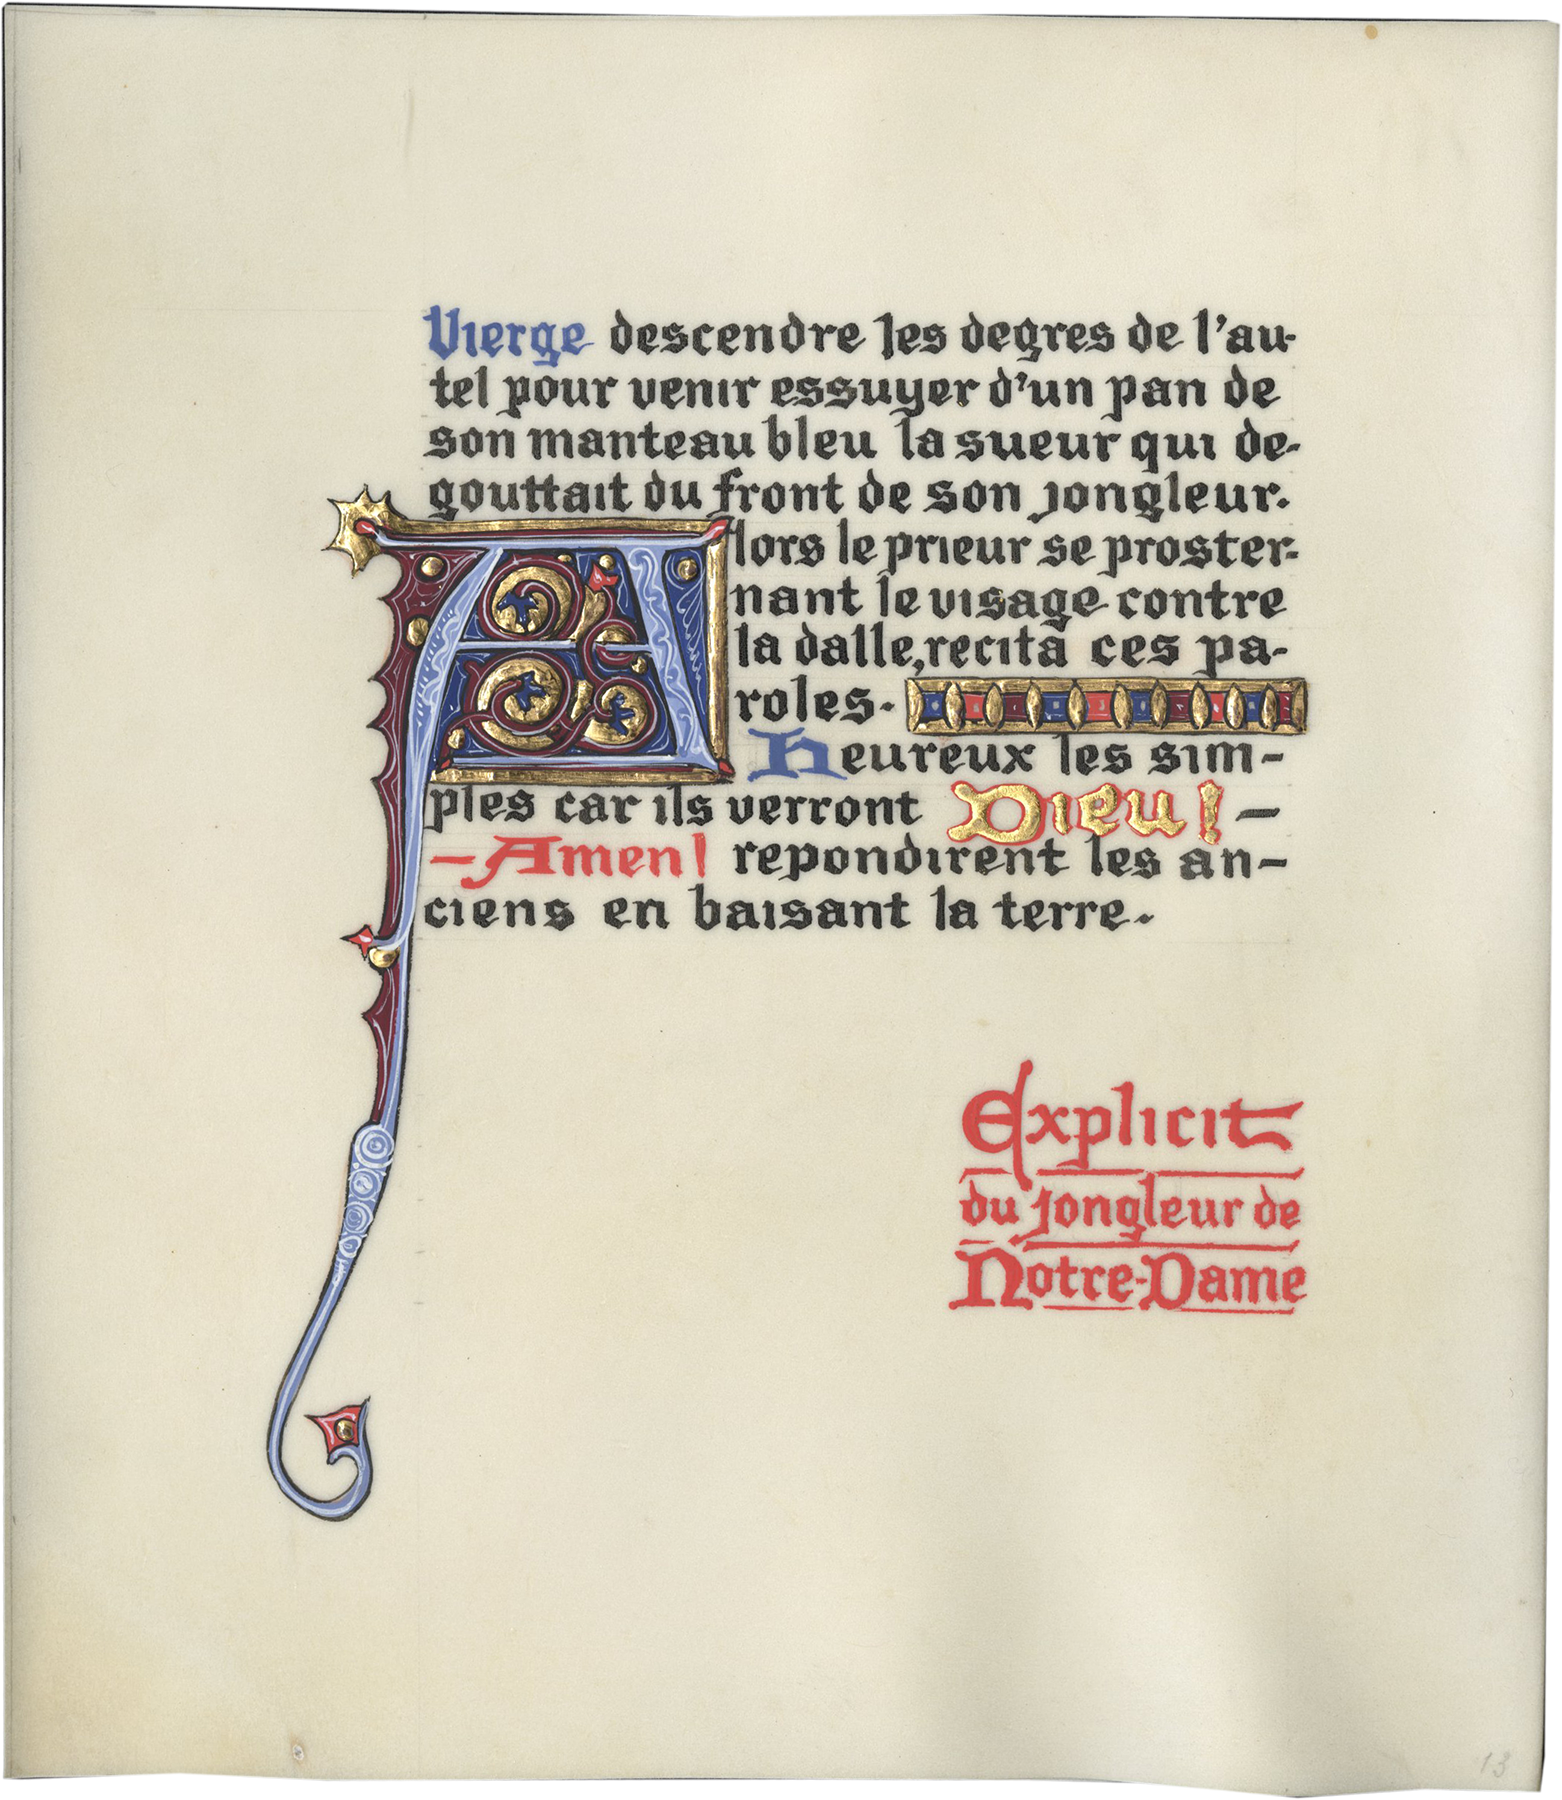 Vierge descendre les degres de l'au-
tel pour venir essuyer d'un pan de
son manteau bleu la sueur qui de-
gouttait du front de son jongleur.
Alors le prieur se proster-
nant le visage contre
la dalle, recita ces pa-
roles.
Heureux les sim-
ples car ils verront Dieu! —
— Amen! repondirent les an-
ciens en baisant la terre.
Explicit
du jongleur de
Notre-Dame
13